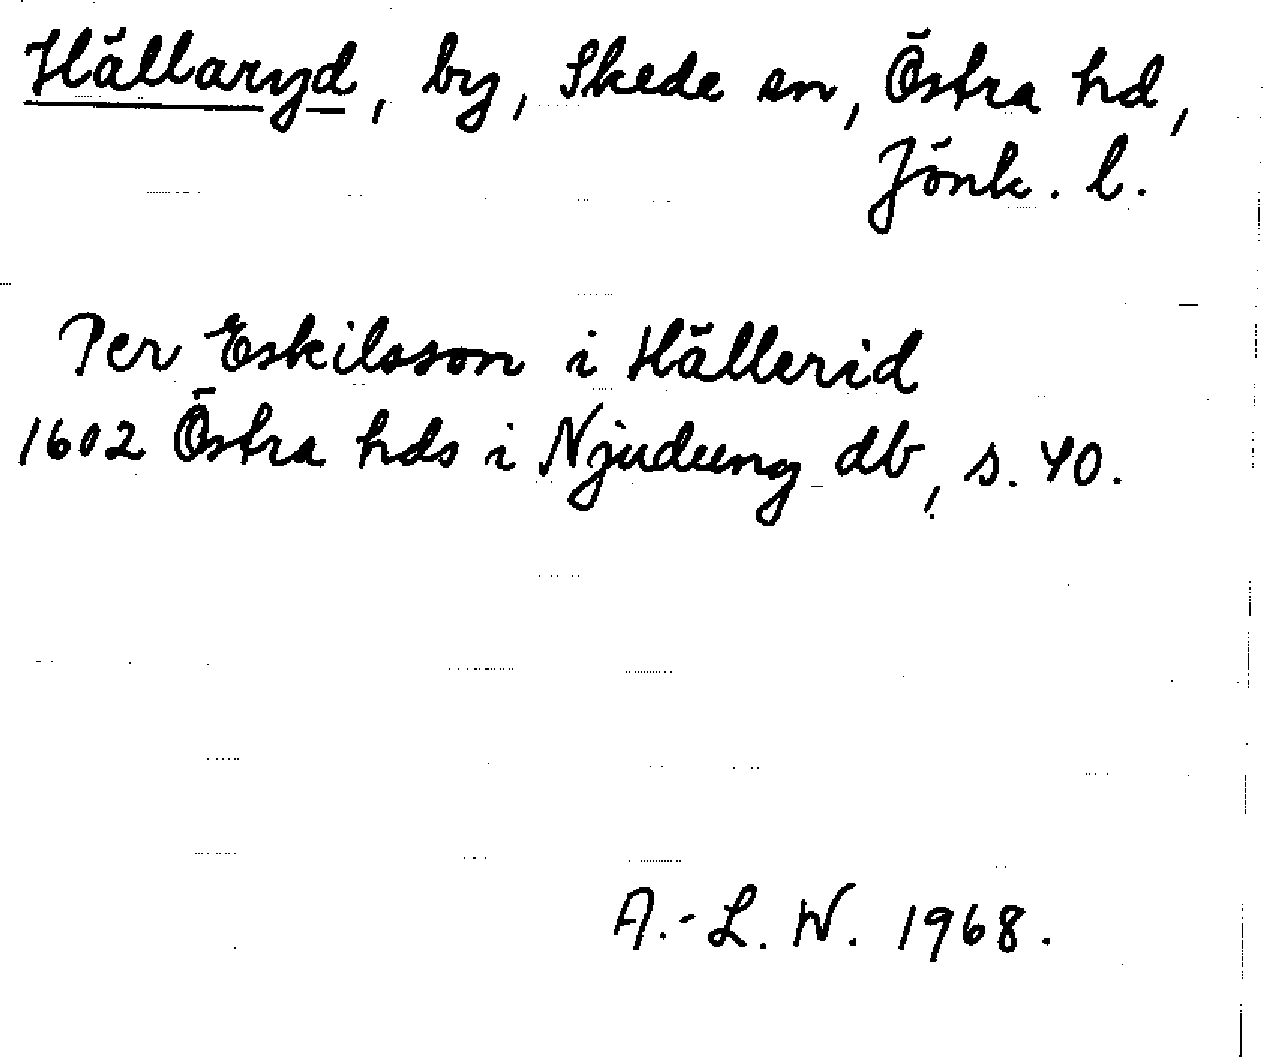 Hällaryd, by, Skede sn, Östra hd,
Jönk. l.
Per Eskilsson i Hällerid
1602 Östra hds i Njudung db, s. 40.
A.-L. W. 1968.